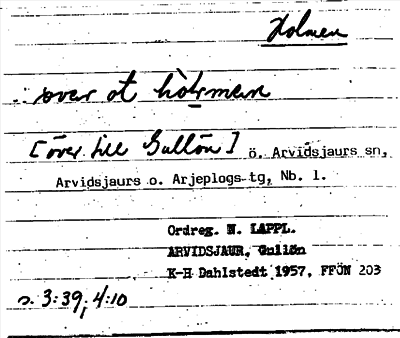 Holmen
.. over ot hòḷmen
[över till Gullön] ö. Arvidsjaurs sn,
Arvidsjaurs o. Arjeplogs tg, Nb. l.
Ordreg. N. LAPPL.
ARVIDSJAUR, Gullön
K-H Dahlstedt 1957, FFÖN 203
s. 3:39; 4:10